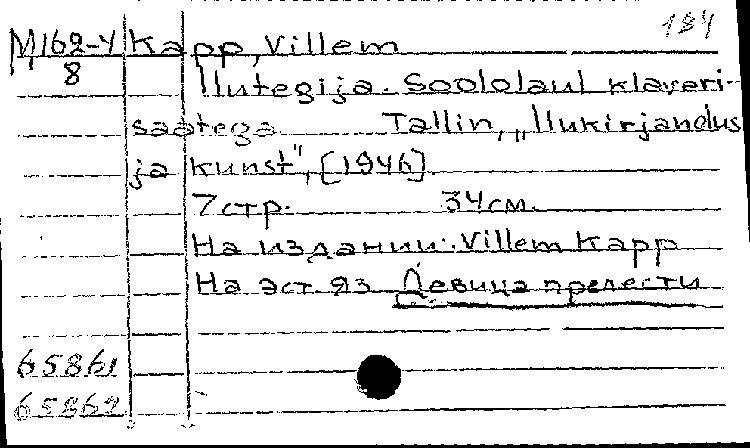 184
М162-4 Kapp, Villem
8
Ilutegija. Soololaul klaveri-
saatega. Tallin, „Ilukirjandus
ja kunst", [1946].
7 стр. 34 см.
На издании: Villem Kapp
На эст. яз. Девица прелести
65861
65862